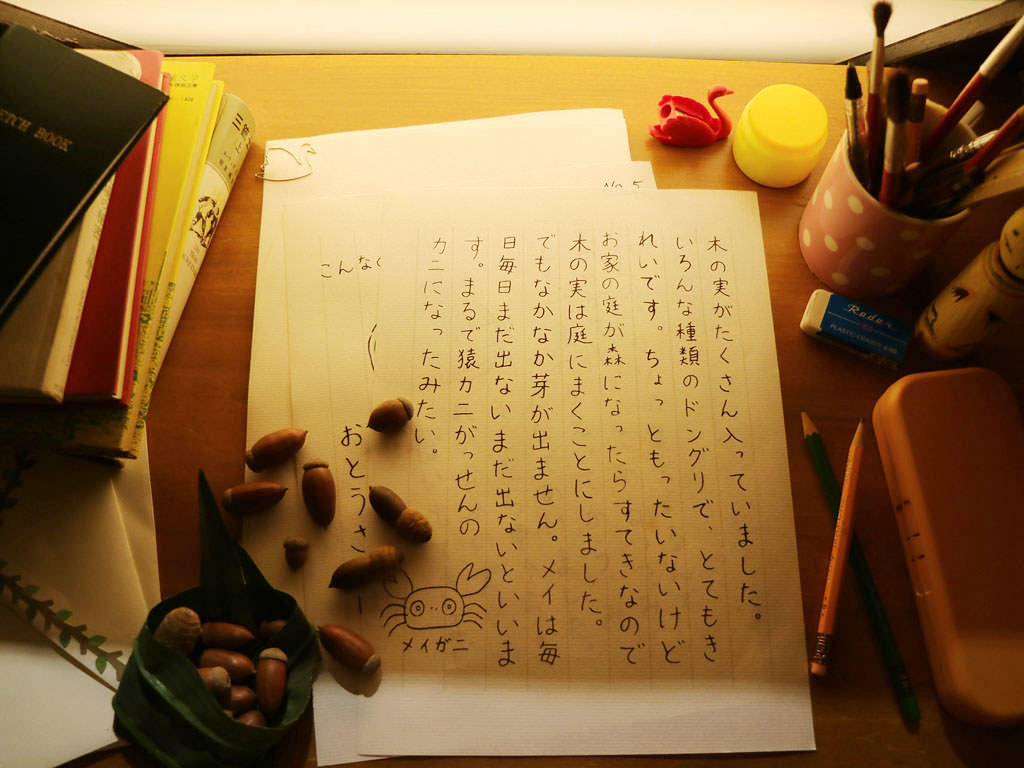 木の実がたくさん入っていました。
いろんな種類のドングリで、とてもき
れいです。ちょっともったいないけど
お家の庭が森になったらすてきなので
木の実は庭にまくことにしました。
でもなかなか芽が出ません。メイは毎
日毎日まだ出ないまだ出ないといいま
す。まるで猿カニがっせんの
カニになったみたい。
メイガニ
こんな
おとうさ
No.5
ETCH BOOK
Radar
PLASTIC ERASER